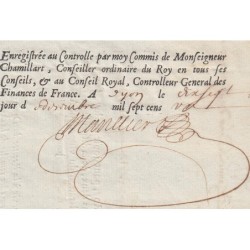 Enregistrée au Controlle par moy Commis de Monseigneur
Chamillart, Conseiller ordinaire du Roy en tous ses
Conseils, & au Conseil Royal, Controlleur General des
Finances de France. A Dyon le dixsept
jour d decembre mil sept cens